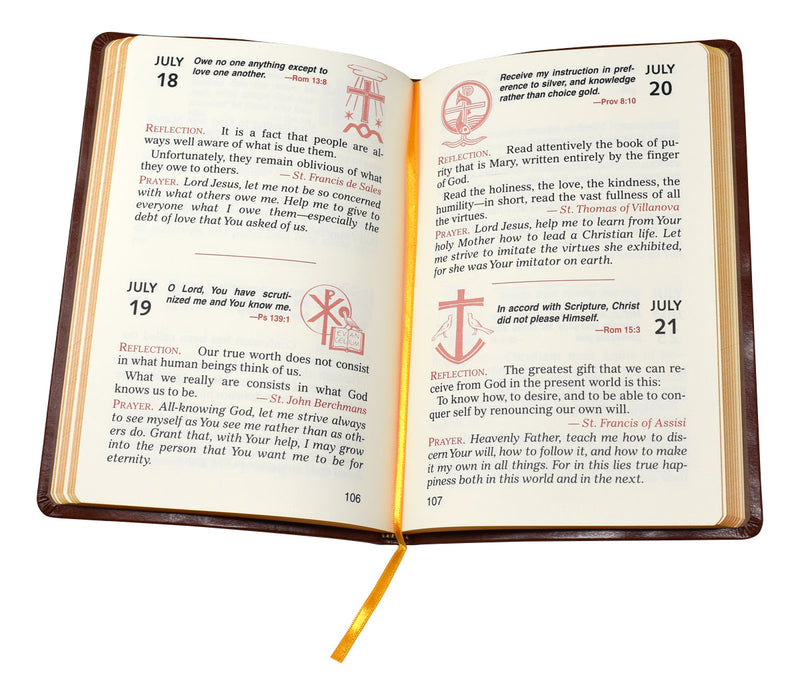 JULY
18
Owe no one anything except to
love one another.
—Rom 13:8
REFLECTION. It is a fact that people are al-
ways well aware of what is due them.
Unfortunately, they remain oblivious of what
they owe to others.
— St. Francis de Sales
PRAYER. Lord Jesus, let me not be so concerned
with what others owe me. Help me to give to
everyone what I owe them—especially the
debt of love that You asked of us.
JULY
19
O Lord, You have scruti-
nized me and You know me.
—Ps 139:1
EVAN
GELIUM
REFLECTION. Our true worth does not consist
in what human beings think of us.
What we really are consists in what God
knows us to be.
— St. John Berchmans
PRAYER. All-knowing God, let me strive always
to see myself as You see me rather than as oth-
ers do. Grant that, with Your help, I may grow
into the person that You want me to be for
eternity.
106
Receive my instruction in pref-
erence to silver, and knowledge
rather than choice gold.
—Prov 8:10
JULY
20
REFLECTION. Read attentively the book of pu-
rity that is Mary, written entirely by the finger
of God.
Read the holiness, the love, the kindness, the
humility—in short, read the vast fullness of all
the virtues.
— St. Thomas of Villanova
PRAYER. Lord Jesus, help me to learn from Your
holy Mother how to lead a Christian life. Let
me strive to imitate the virtues she exhibited,
for she was Your imitator on earth.
In accord with Scripture, Christ
did not please Himself.
—Rom 15:3
JULY
21
REFLECTION. The greatest gift that we can re-
ceive from God in the present world is this:
To know how, to desire, and to be able to con-
quer self by renouncing our own will.
— St. Francis of Assisi
PRAYER. Heavenly Father, teach me how to dis-
cern Your will, how to follow it, and how to make
it my own in all things. For in this lies true hap-
piness both in this world and in the next.
107